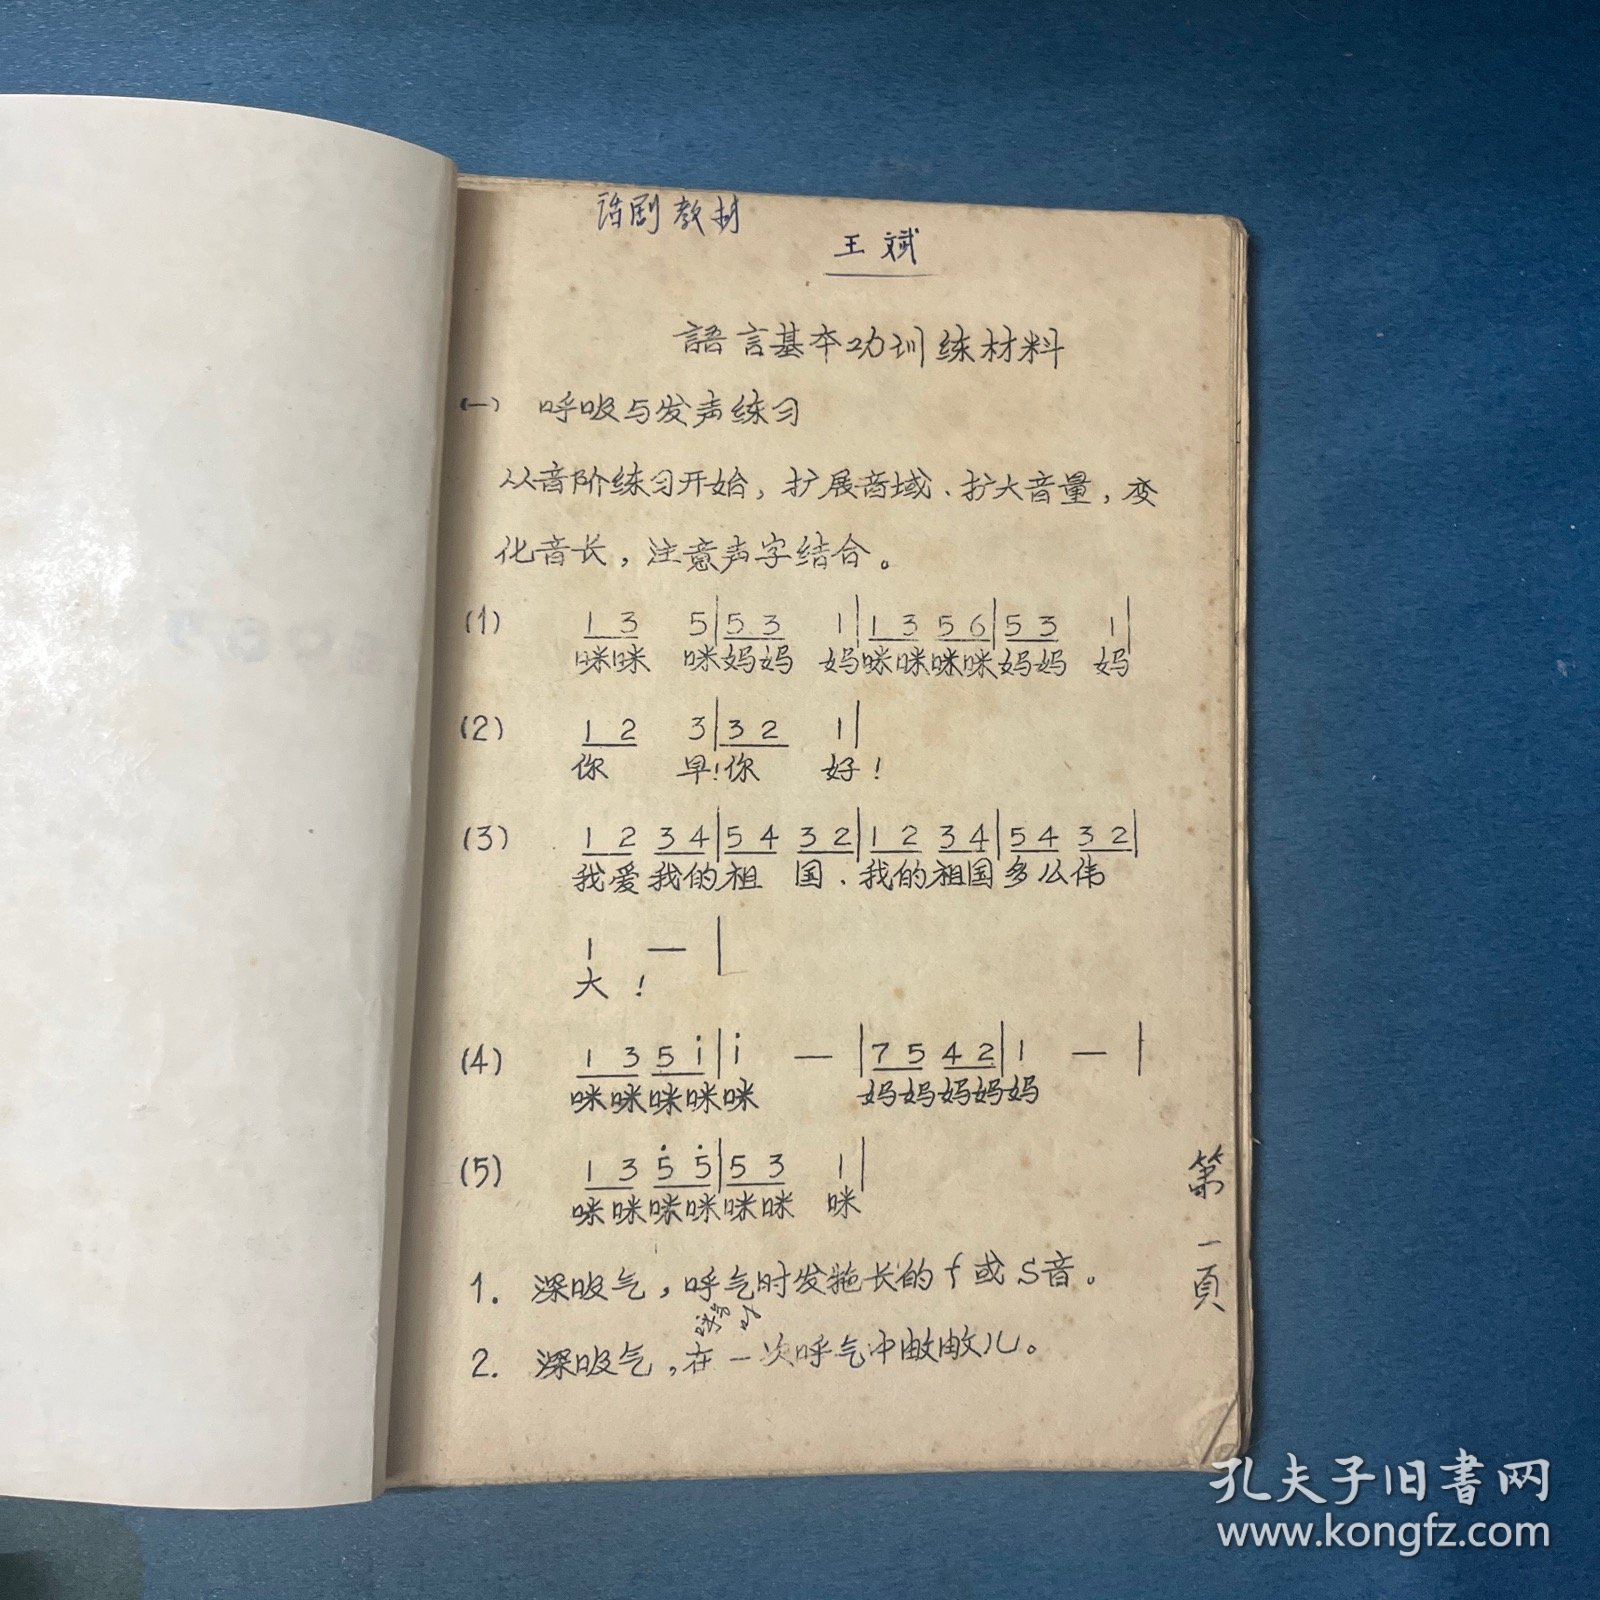 话剧教材
王斌
語言基本功训练材料
(一) 呼吸与发声练习
从音阶练习开始，扩展音域、扩大音量，变
化音长，注意声字结合。
(1) 1 3 5|5 3 1|1 3 5 6|5 3 1|
咪咪 咪妈妈 妈咪咪咪咪妈妈 妈
(2) 1 2 3|3 2 1|
你 早!你 好!
(3) 1 2 3 4|5 4 3 2|1 2 3 4|5 4 3 2|
我爱我的祖 国、我的祖国多么伟
1 — |
大 !
(4) 1 3 5 i|i — |7 5 4 2|1 — |
咪咪咪咪咪 妈妈妈妈妈
(5) 1 3 5̇ 5̇|5 3 1|
咪咪咪咪咪咪 咪
1. 深吸气，呼气时发拖长的f或S音。
2. 深吸气，在一次呼气中儿。
第一頁
孔夫子旧书网
www.kongfz.com